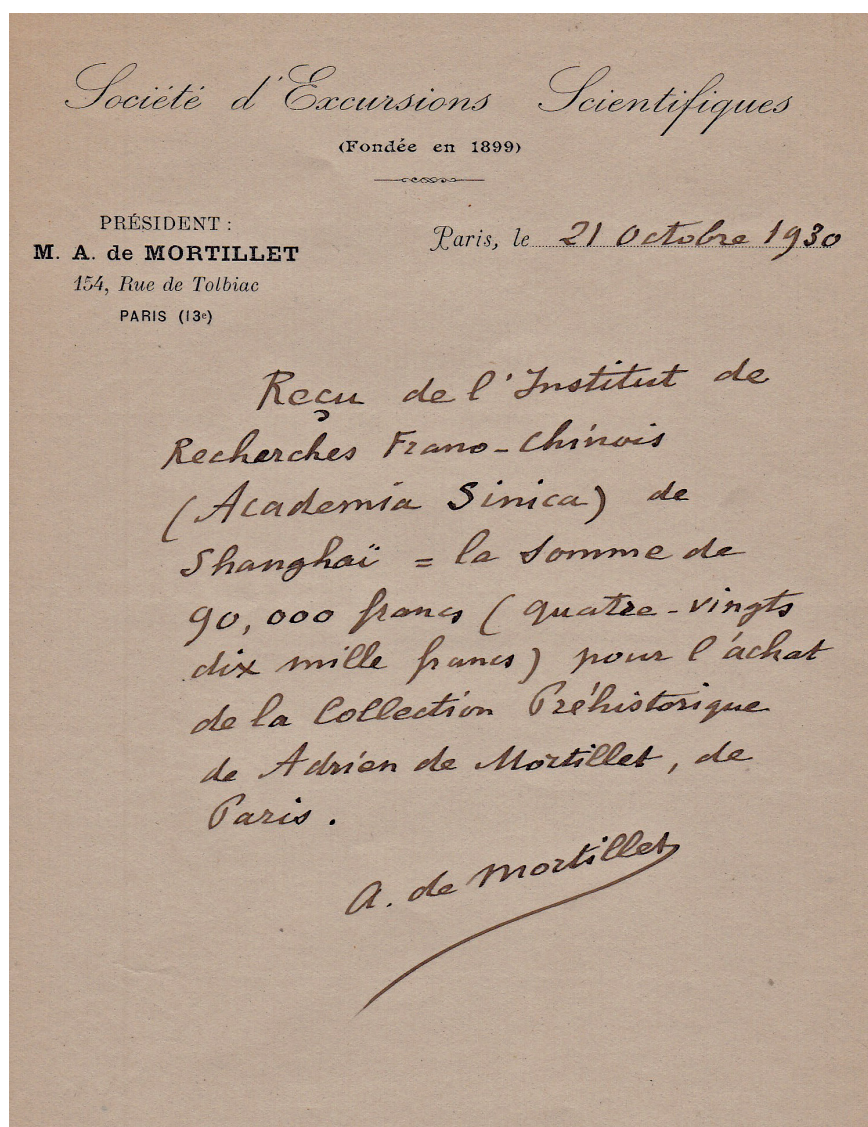 Société d'Excursions Scientifiques
(Fondée en 1899)
PRÉSIDENT :
M. A. de MORTILLET
154, Rue de Tolbiac
PARIS (13e)
Paris, le 21 Octobre 1930
Reçu de l'Institut de
Recherches Frano-Chinois
(Academia Sinica) de
Shanghaï = la somme de
90,000 francs (quatre-vingts
dix mille francs) pour l'achat
de la Collection Préhistorique
de Adrien de Mortillet, de
Paris.
A. de Mortillet